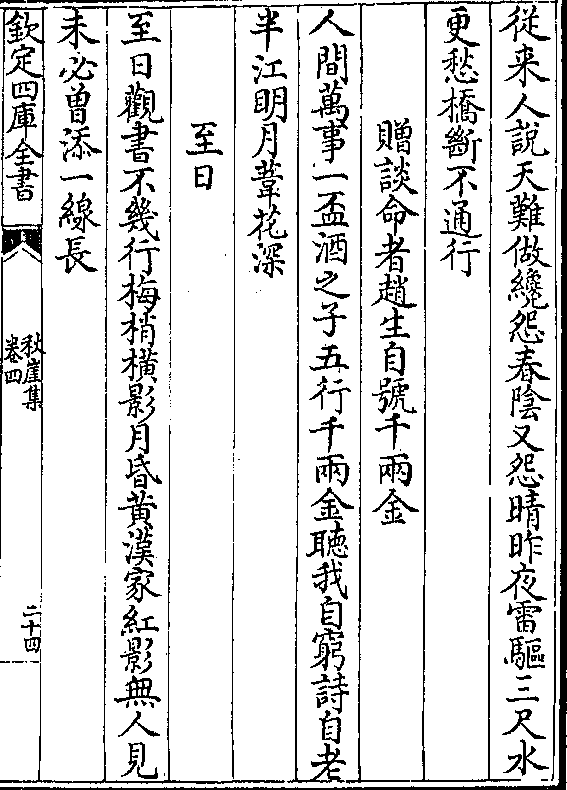 従来人說天難做纔怨春陰又怨晴昨夜雷驅三尺水
更愁橋斷不通行
贈談命者趙生自號千兩金
人間萬事一盃酒之子五行千兩金聽我自窮詩自老
半江明月葦花深
至日
至日觀書不幾行梅梢橫影月昏黃漢家紅影無人見
未必曾添一線長
欽定四庫全書
秋崖集
卷四
二十四